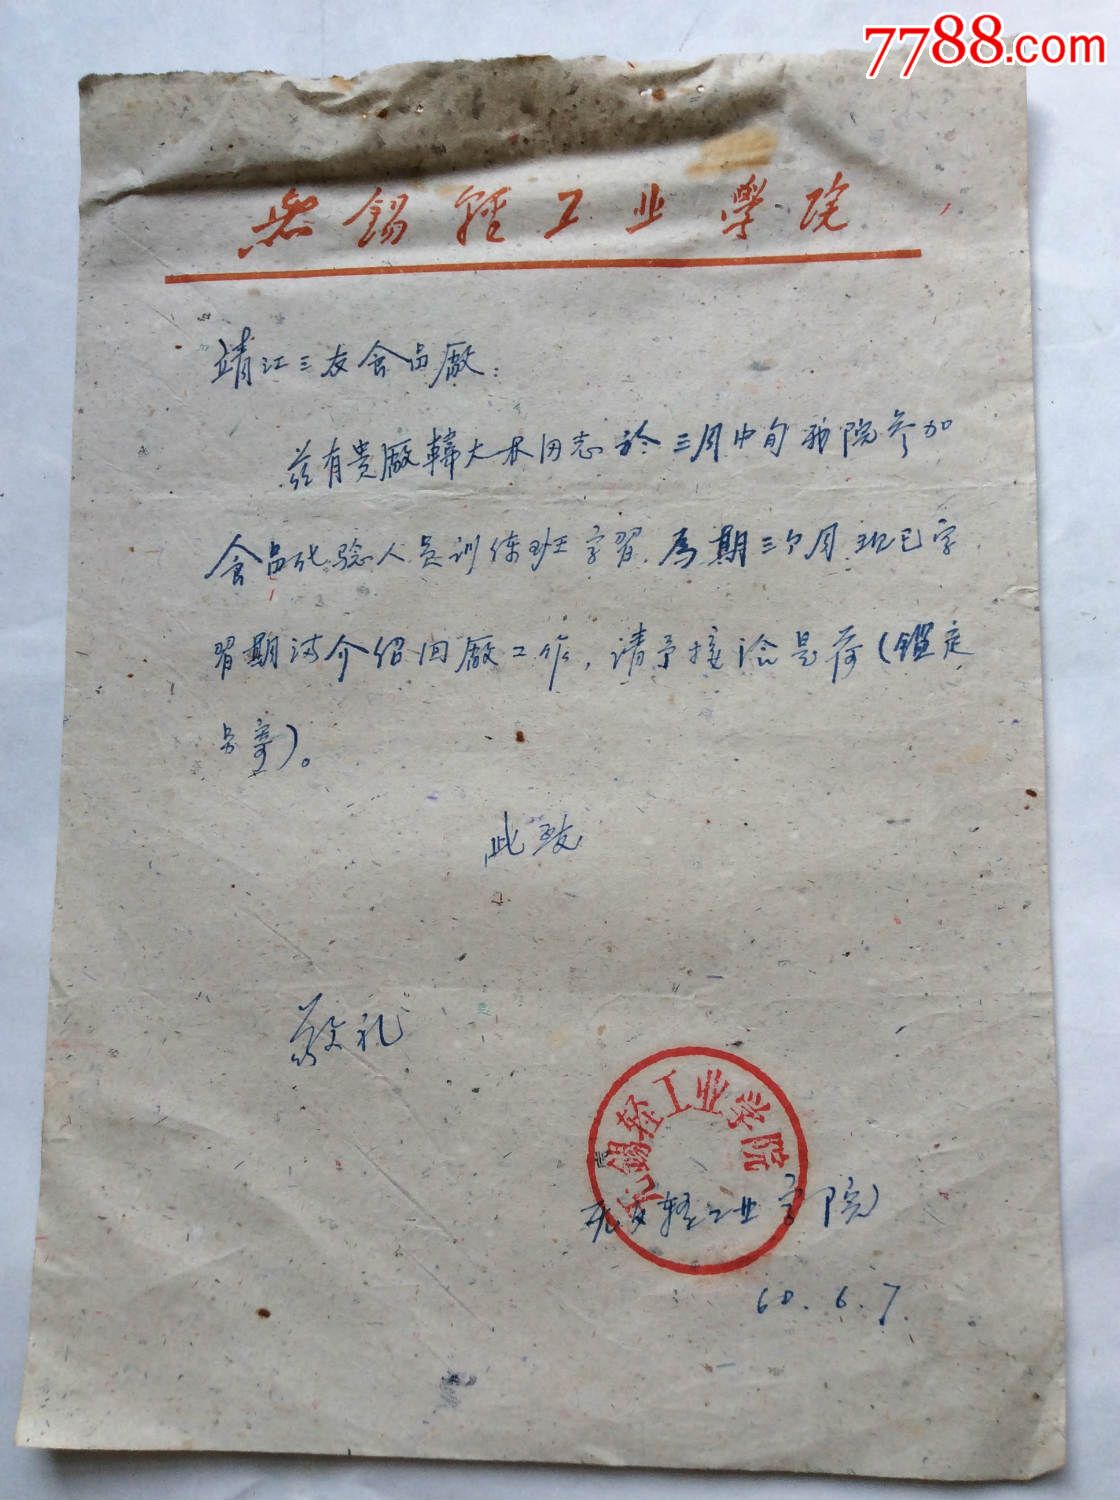 7788.com
無錫轻工业学院
靖江三友食品廠：
兹有贵廠韓大林同志於三月中旬我院参加
食品化验人员训练班学習，為期三个月现已学
習期满介绍回廠工作，请予接洽是荷（鑑定
另寄）。
此致
敬礼
无锡轻工业学院
无锡轻工业学院
60.6.7.